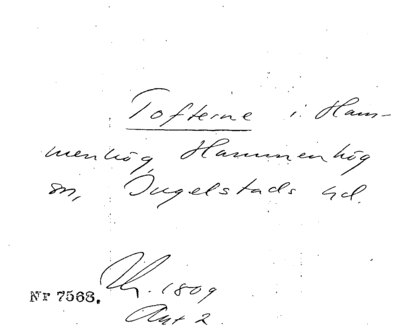 Tofterne i Ham-
menhög, Hammenhög
sn, Ingelstads hd.
Nr 7568. 1809
Akt 2